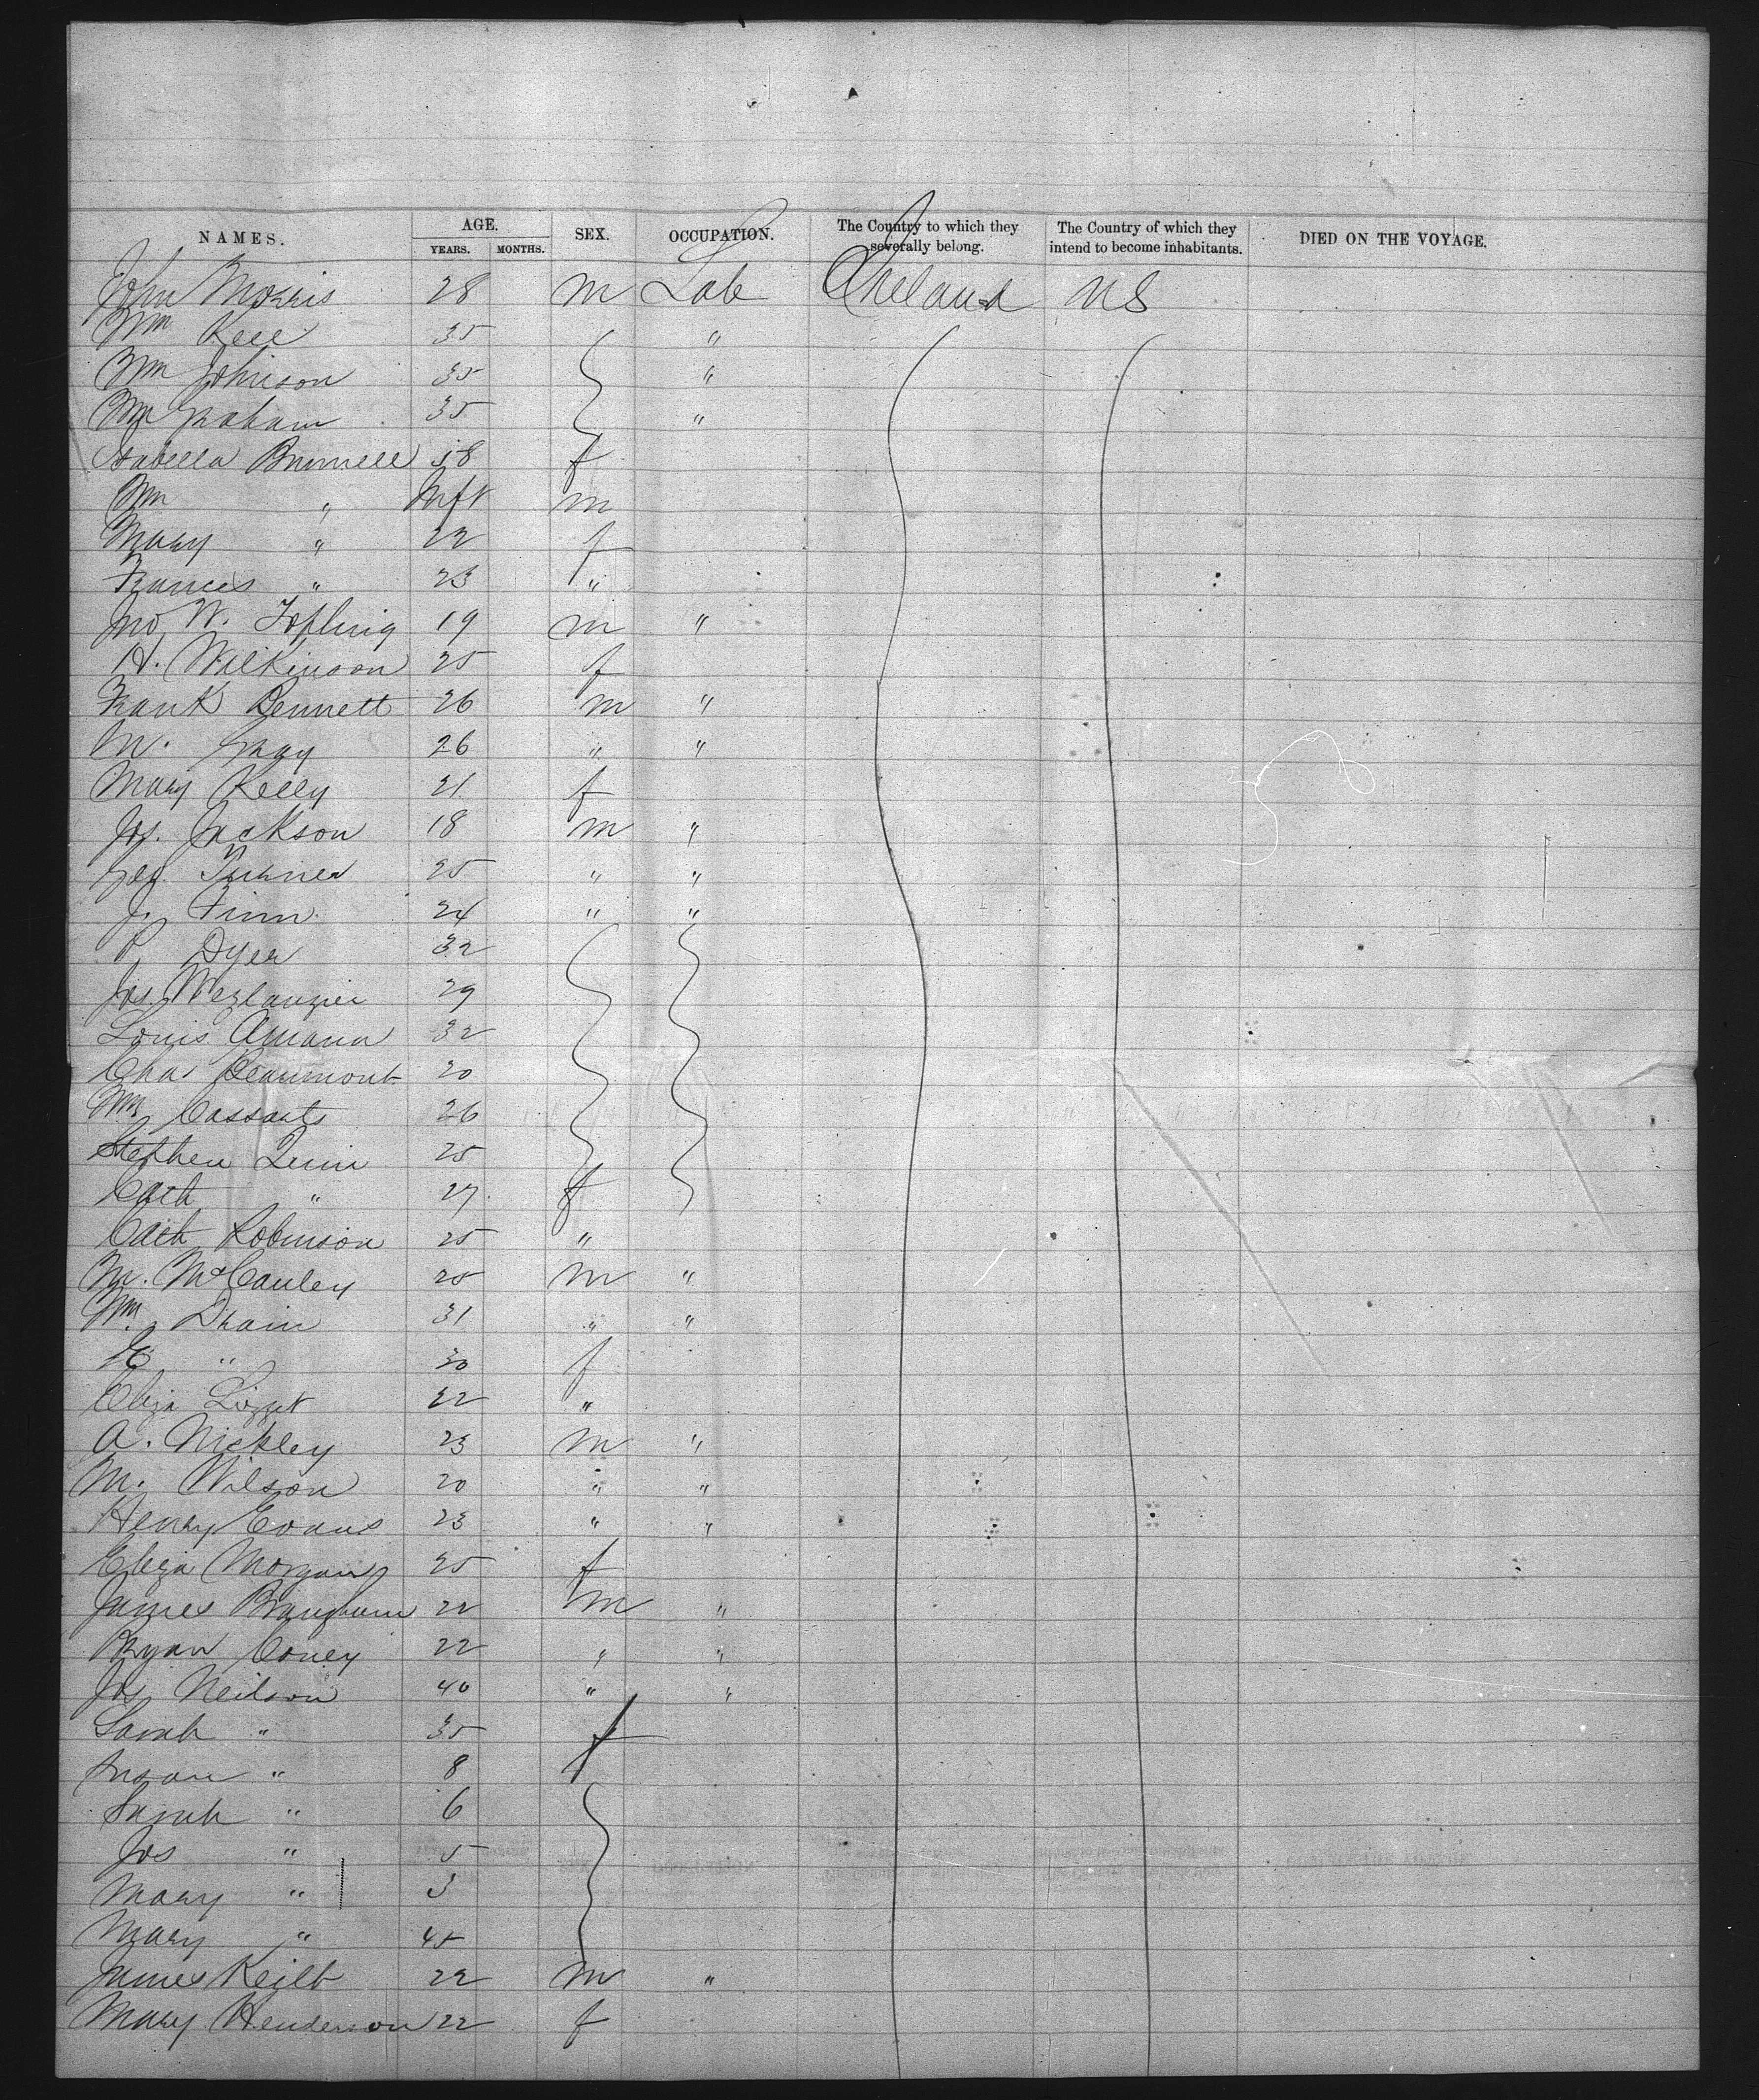 NAMES. AGE. YEARS. MONTHS. SEX. OCCUPATION. The Country to which they severally belong. The Country of which they intend to become inhabitants. DIED ON THE VOYAGE.
John Morris 28 m Lab Ireland US
Wm Kell 35 "
Wm Johnson 35 "
Wm Graham 35 "
Isabella Brumell 58 f
Wm " Inft m
Mary " 22 f
Frances " 23 "
Jno W. Topling 19 m "
H. Wilkinson 25 f
Frank Bennett 26 m "
M. Gray 26 " "
Mary Kelly 21 f
Jos. Jackson 18 m "
Geo. Turner 25 " "
J. Finn 24 " "
P. Dyer 32
Jos. 29
Louis Amann 32
Chas Beaumont 20
Wm Cassants 26
Stephen Quin 25
Cath " 27 f
Cath Robinson 25 "
M. McCauley 25 m "
Wm. Drain 31 " "
E " 30 f
Eliza 22 "
A. Nickley 23 m "
M. Wilson 20 " "
Henry Evans 23 " "
Eliza Morgan 25 f
James Brangham 22 m "
Ryan Coney 22 " "
Jos Neilson 40 " "
Sarah " 35 f
Susan " 8
Sarah " 6
Jos " 5
Mary " 3
Mary " 45
James Keilt 22 m "
Mary Henderson 22 f